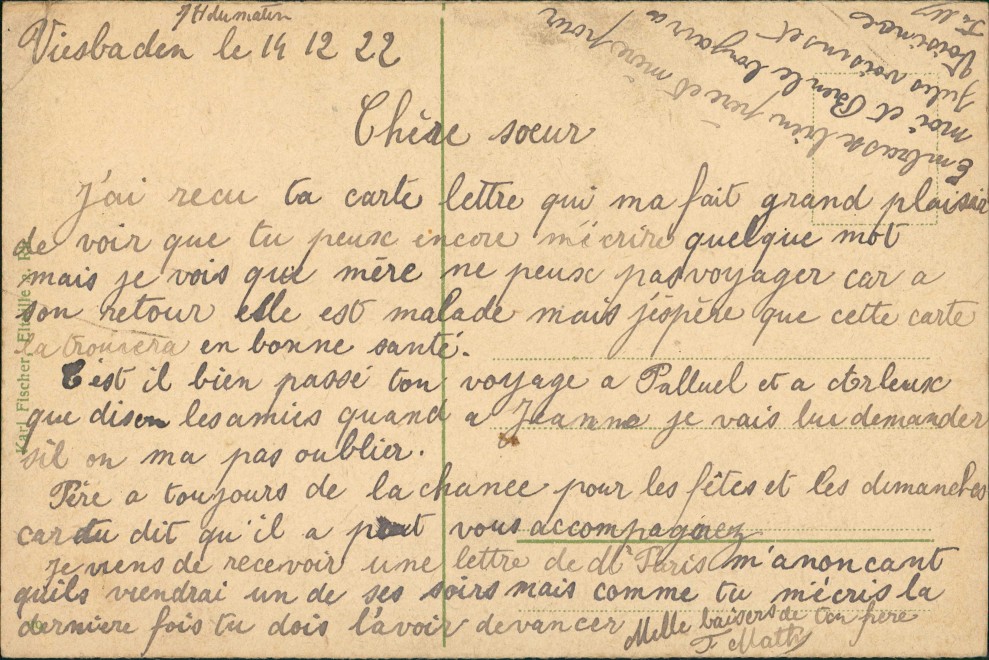 7 H du matin
Viesbaden le 14 12 22
Chère sœur
J'ai recu ta carte lettre qui ma fait grand plaisir
de voir que tu peux encore m'écrire quelque mot
mais je vois que mère ne peux pas voyager car a
son retour elle est malade mais j'éspère que cette carte
la trouvera en bonne santé.
C'est il bien passé ton voyage a Palluel et a Arleux
que disen les amies quand a Jeanne je vais lui demander
s'il on ma pas oublier.
Père a toujours de la chance pour les fêtes et les dimanches
car tu dit qu'il a put vous accompagnez
je viens de recevoir une lettre de Mr Paris m'anoncant
qu'ils viendrai un de ses soirs mais comme tu m'écris la
derniere fois tu dois l'avoir devancer
Mille baisers de ton frere
F Math
Embrasse bien père et mère pour
moi et Bien le bonjour a
Jules voisins et
Voisines
Karl Fischer, Eltville a. Rh.